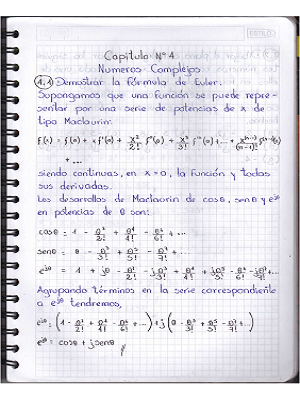 Capítulo Nº 4
Numeros Complejos
4.1 Demostrar la Fórmula de Euler:
Supongamos que una función se puede repre-
sentar por una serie de potencias de x de
tipo Maclaurin:
f(x) = f(o) + x f'(o) + x²/2! f''(o) + x³/3! f'''(o) + ... + x^(n-1)/(n-1)!
+ ...
siendo continuas, en x = 0, la función y todas
sus derivadas.
Los desarrollos de Maclaurin de cosθ, senθ y e^jθ
en potencias de θ son:
cosθ = 1 - θ²/2! + θ⁴/4! - θ⁶/6! + ...
senθ = θ - θ³/3! + θ⁵/5! - θ⁷/7! + ...
e^jθ = 1 + jθ - θ²/2! - jθ³/3! + θ⁴/4! + jθ⁵/5! - θ⁶/6! - jθ⁷/7! + ...
Agrupando términos en la serie correspondiente
a e^jθ tendremos,
e^jθ = (1 - θ²/2! + θ⁴/4! - θ⁶/6! + ...) + j(θ - θ³/3! + θ⁵/5! - θ⁷/7! + ...)
e^jθ = cosθ + jsenθ